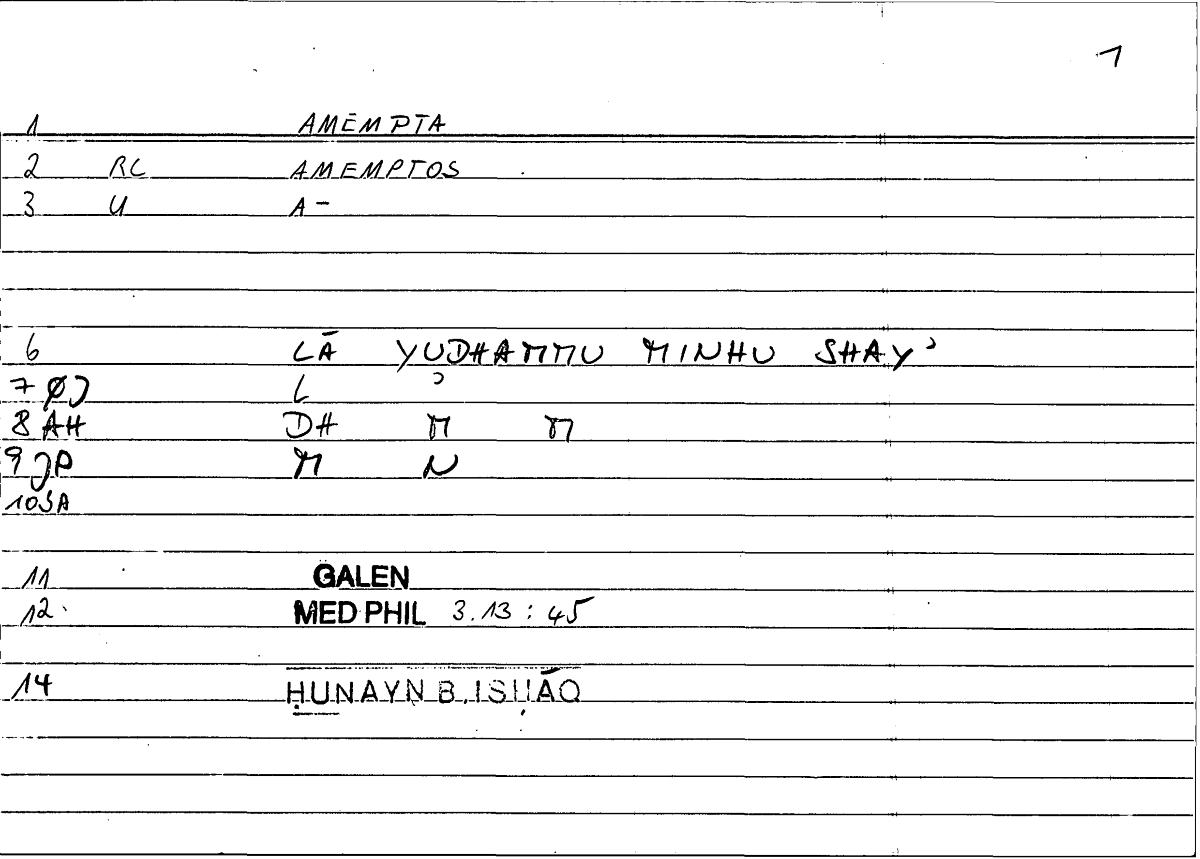 1
1 AMEMPTA
2 RC AMEMPTOS
3 U A-
6 LĀ YUDHAMMU MINHU SHAYʾ
7 ØJ L ʾ
8 AH DH M M
9 JP M N
10 SA
11 GALEN
12 MED PHIL 3.13 : 45
14 ḤUNAYN B. ISḤĀQ